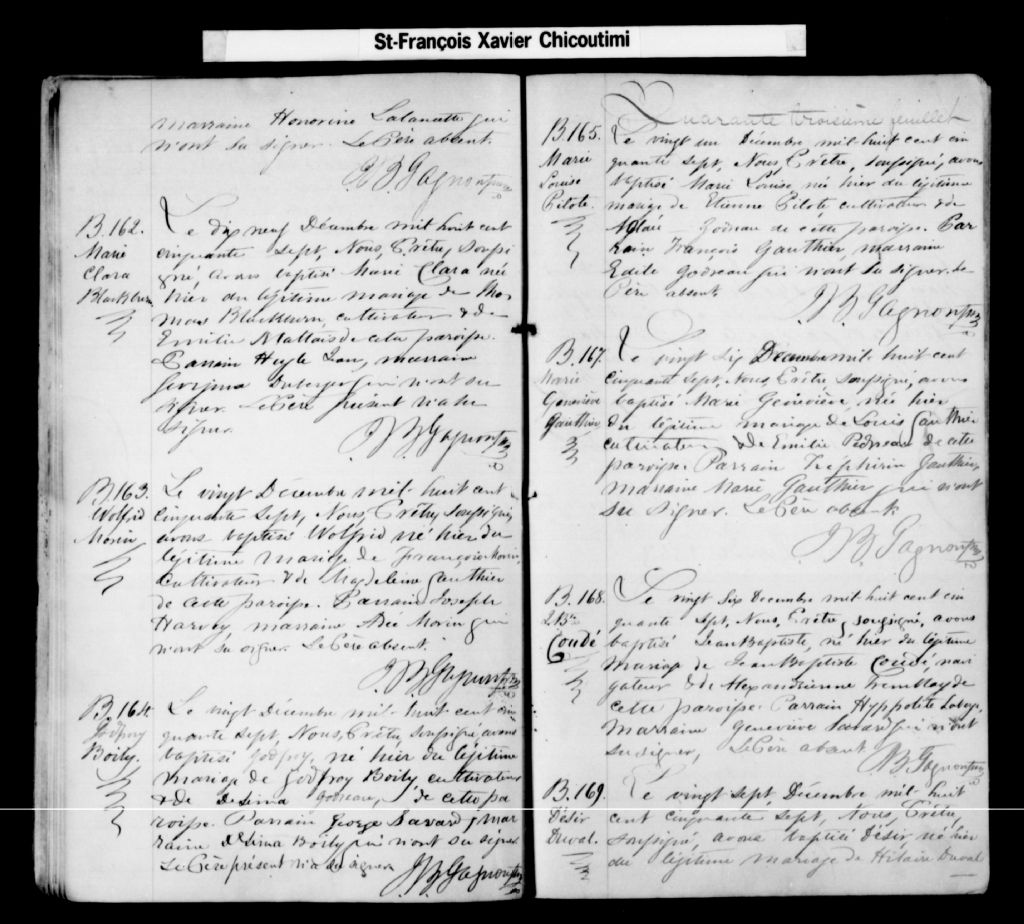 St-François Xavier Chicoutimi
marraine Honorine Lalancette qui
n'ont su signer. Le Père absent.
J B Gagnon ptre
B. 162.
Marie
Clara
Blackburn
Le dix neuf Décembre mil huit cent
cinquante sept, Nous, Prêtre, soussi
gné, avons baptisé Marie Clara née
hier du légitime mariage de Tho
mas Blackburn, cultivateur & de
Emilie Maltais de cette paroisse.
Parrain marraine
qui n'ont su
signer. Le Père présent n'a su
signer.
J B Gagnon ptre
B. 163.
Wolfrid
Morin
Le vingt Décembre mil huit cent
cinquante sept, Nous, Prêtre, soussigné,
avons baptisé Wolfrid né hier du
légitime mariage de François Morin,
cultivateur & de Magdeleine Gauthier
de cette paroisse. Parrain Joseph
Harvey marraine Morin qui
n'ont su signer. Le Père absent.
J B Gagnon ptre
B. 164.
Godfroy
Boily.
Le vingt Décembre mil huit cent cin
quante sept, Nous, Prêtre soussigné, avons
baptisé Godfroy, né hier du légitime
mariage de Godfroy Boily cultivateur
& de Delima Godreau, de cette pa
roisse. Parrain George Savard, mar
raine Delima Boily qui n'ont su signer
Le Père présent n'a su signer
J B Gagnon ptre
Quarante troisième feuillet
B. 165.
Marie
Louise
Pilote.
Le vingt un Décembre mil huit cent cin
quante sept, Nous, Prêtre, soussigné, avons
baptisé Marie Louise, né hier du légitime
mariage de Etienne Pilote cultivateur & de
Godreau de cette paroisse. Par
rain François Gauthier, marraine
Edile Godreau qui n'ont su signer. Le
Père absent
J B Gagnon ptre
B. 167.
Marie
Geneviève
Gauthier
Le vingt six Décembre mil huit cent
cinquante sept, Nous, Prêtre soussigné, avons
baptisé Marie Geneviève, né hier
du légitime mariage de Louis Gauthier
cultivateur & de Emilie Pedneau de cette
paroisse. Parrain Zéphirin Gauthier,
marraine Marie Gauthier qui n'ont
su signer. Le Père absent
J B Gagnon ptre
B. 168.
J. Bte
Coudé
Le vingt six Decembre mil huit cent cin
quante sept, Nous, Prêtre, soussigné, avons
baptisé Jean Baptiste, né hier du légitime
mariage de Jean Baptiste Coudé, navi
gateur & de Alexandrienne Tremblay de
cette paroisse. Parrain Hyppolite
marraine Geneviève Savard qui n'ont
su signer, Le Père absent
J B Gagnon ptre
B. 169.
Désir
Duval.
Le vingt sept, Décembre mil huit
cent cinquante sept, Nous, Prêtre,
soussigné, avons baptisé Désir, né hier
du légitime mariage de Hilaire Duval